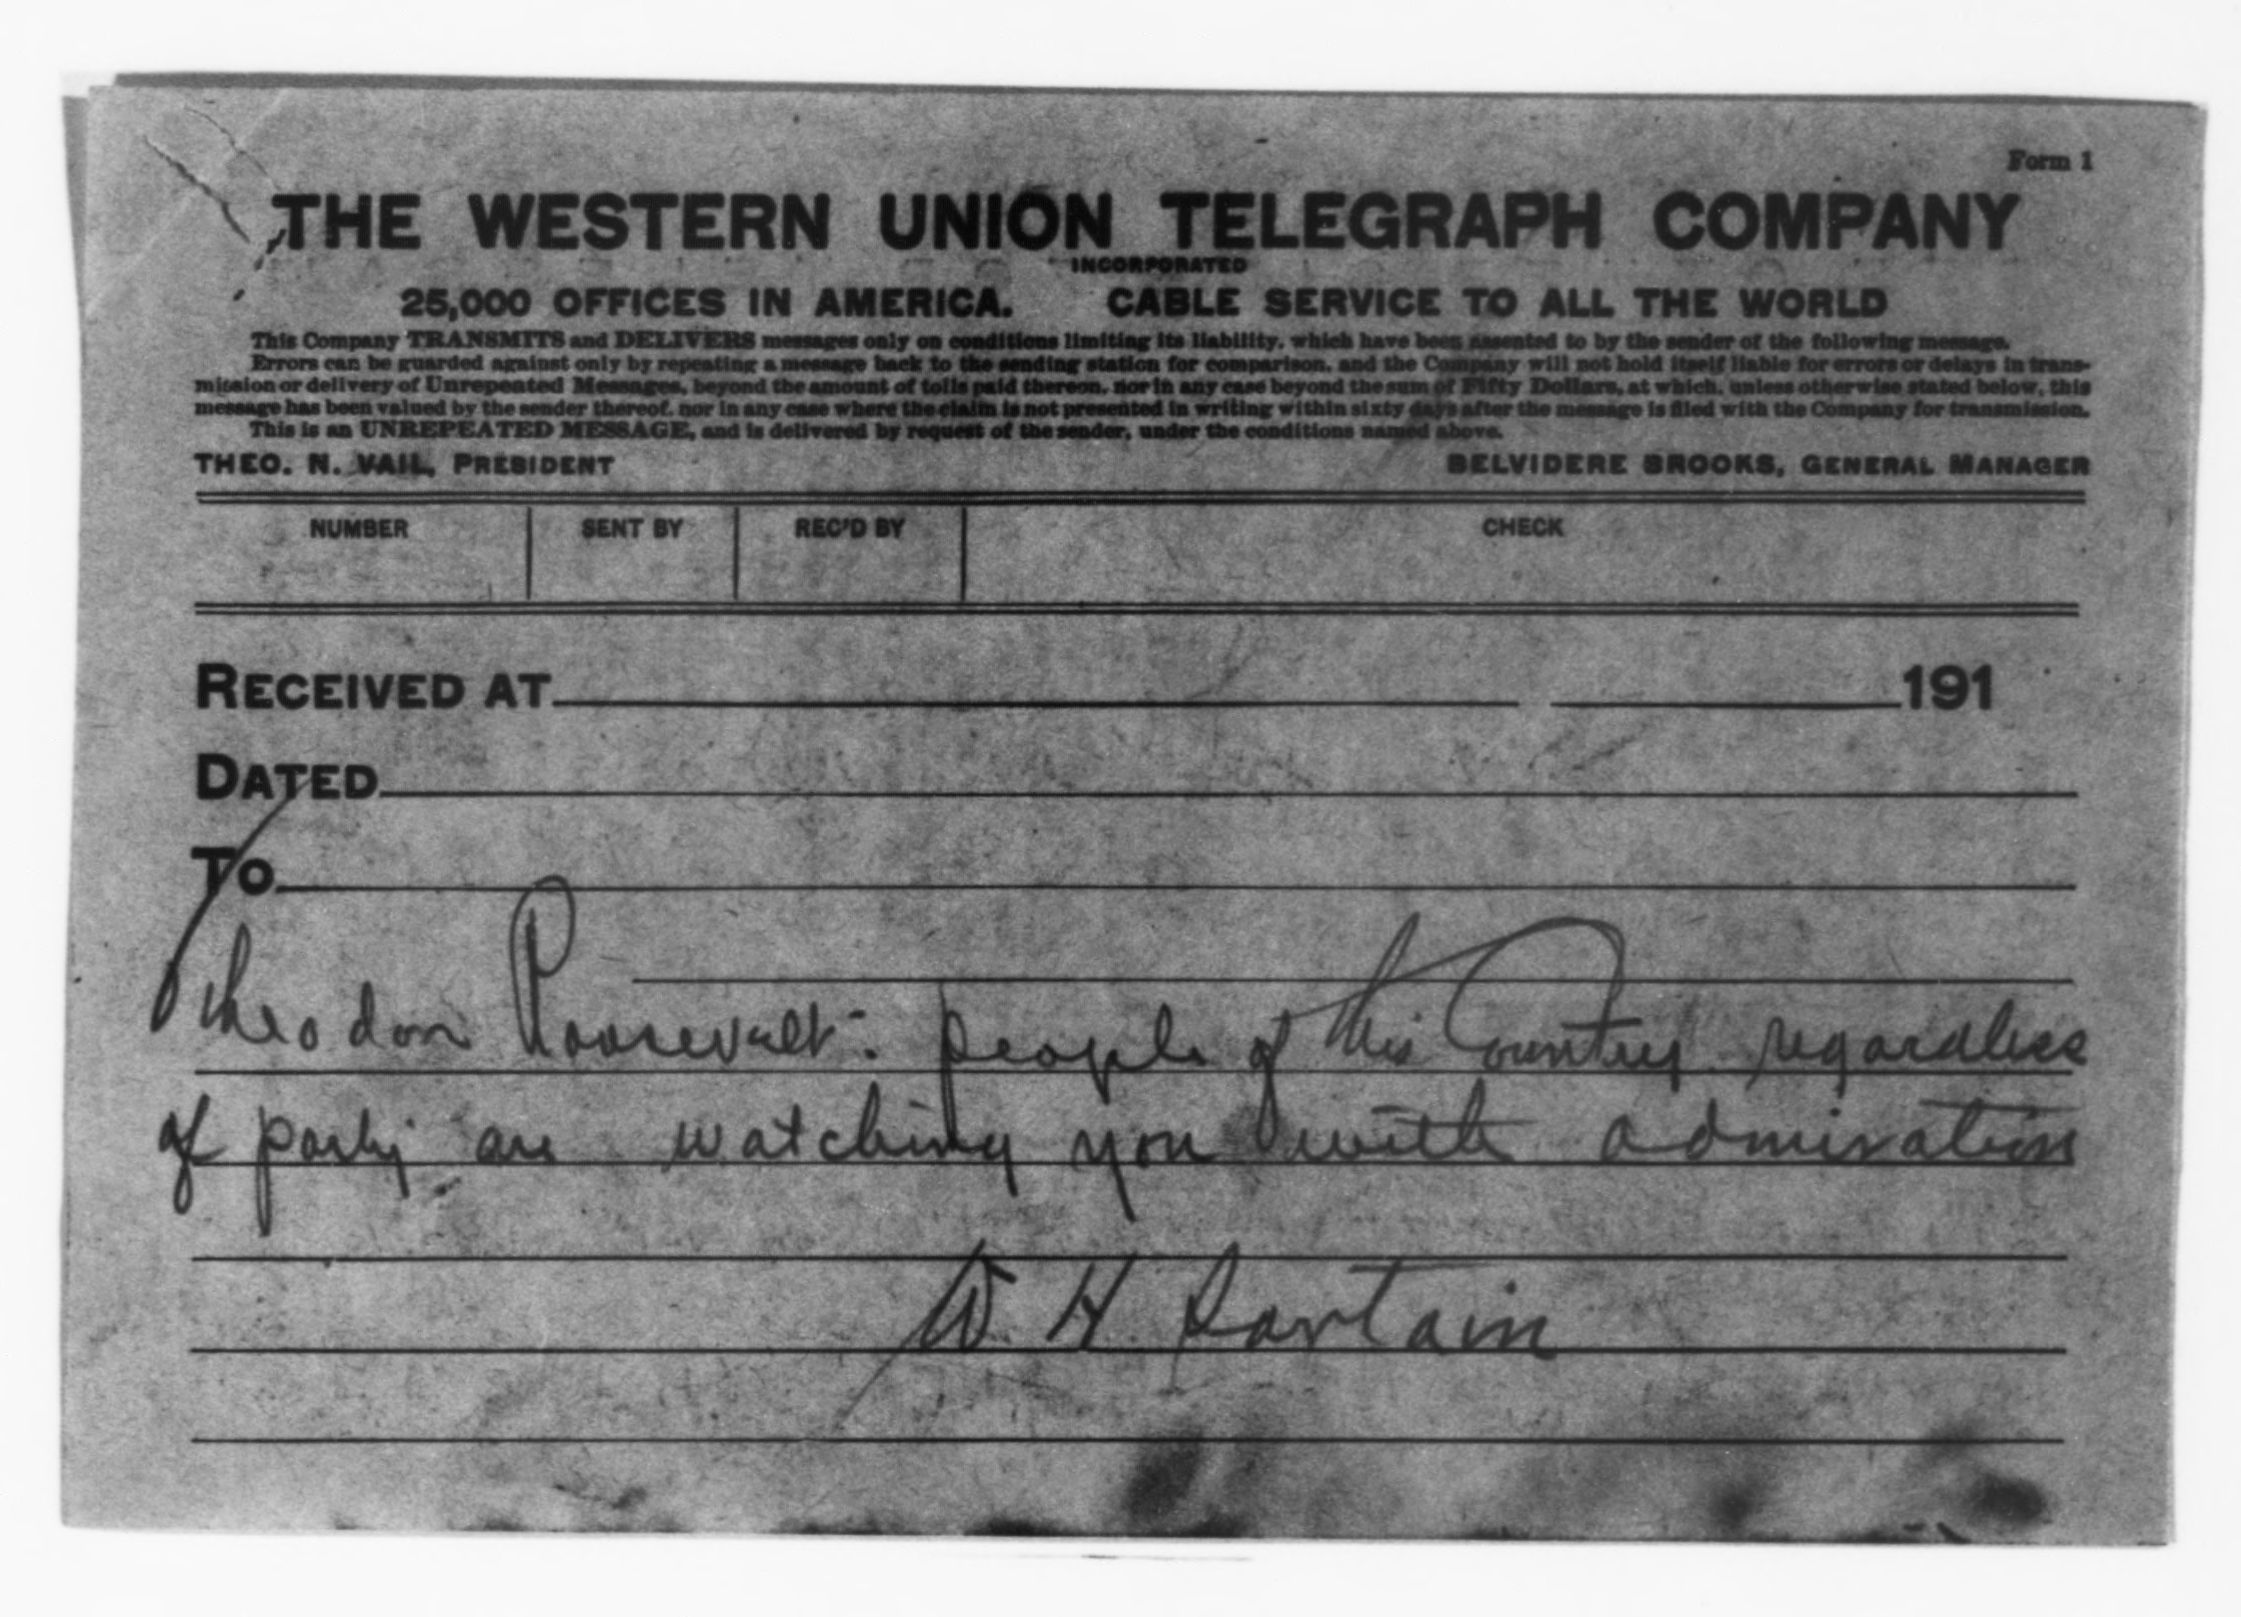 Form 1
THE WESTERN UNION TELEGRAPH COMPANY
INCORPORATED
25,000 OFFICES IN AMERICA. CABLE SERVICE TO ALL THE WORLD
This Company TRANSMITS and DELIVERS messages only on conditions limiting its liability, which have been assented to by the sender of the following message.
Errors can be guarded against only by repeating a message back to the sending station for comparison, and the Company will not hold itself liable for errors or delays in trans-
mission or delivery of Unrepeated Messages, beyond the amount of tolls paid thereon, nor in any case beyond the sum of Fifty Dollars, at which, unless otherwise stated below, this
message has been valued by the sender thereof, nor in any case where the claim is not presented in writing within sixty days after the message is filed with the Company for transmission.
This is an UNREPEATED MESSAGE, and is delivered by request of the sender, under the conditions named above.
THEO. N. VAIL, PRESIDENT BELVIDERE BROOKS, GENERAL MANAGER
NUMBER SENT BY REC'D BY CHECK
RECEIVED AT 191
DATED
TO
Theodore Roosevelt: people of this Country regardless
of party are watching you with admiration
W. H. Sartain